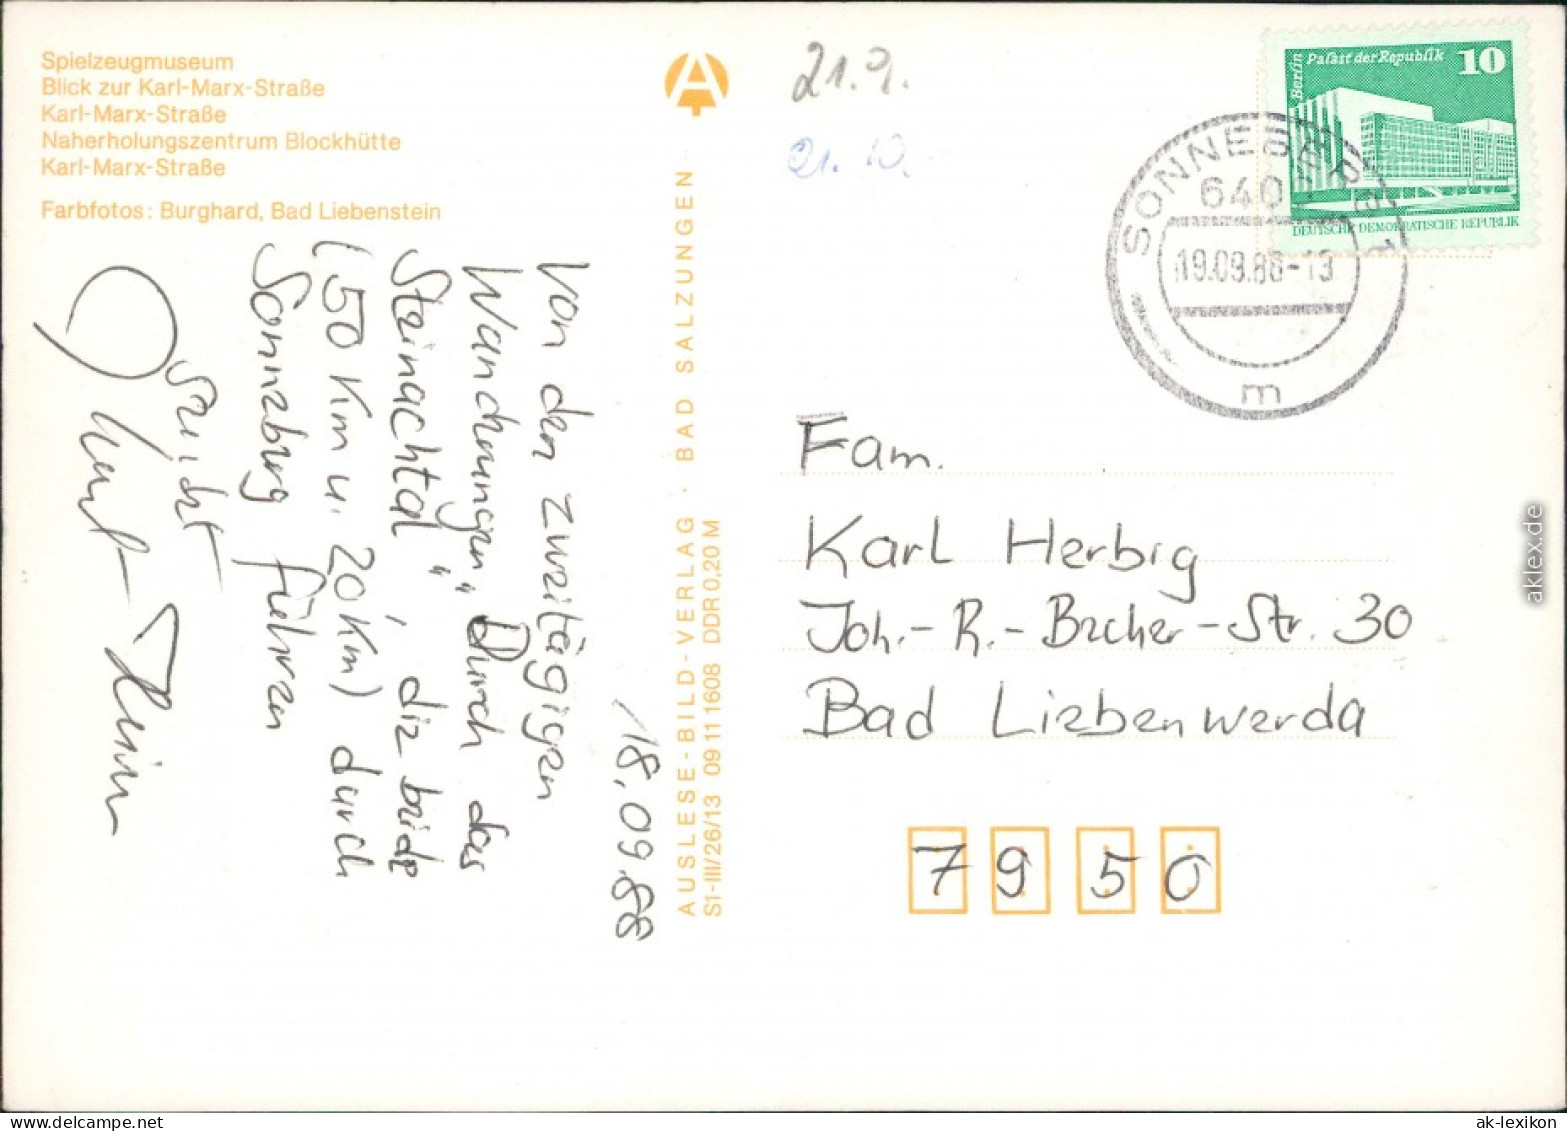 Spielzeugmuseum
Blick zur Karl-Marx-Straße
Karl-Marx-Straße
Naherholungszentrum Blockhütte
Karl-Marx-Straße
Farbfotos: Burghard, Bad Liebenstein
18.09.88
Von den zweitägigen
Wanderungen „Durch das
Steinachtal“, die beide
(50 Km u. 20 Km) durch
Sonneberg führen
grüßt
AUSLESE-BILD-VERLAG · BAD SALZUNGEN
S1-III/26/13 09 11 1608 DDR 0,20 M
21.9.
21. 10.
Berlin
Palast der Republik 10
DEUTSCHE DEMOKRATISCHE REPUBLIK
SONNEBERG 1
640
19.09.88-13
m
Fam.
Karl Herbig
Joh.-R.-Becher-Str. 30
Bad Liebenwerda
7950
aklex.de
ak-lexikon